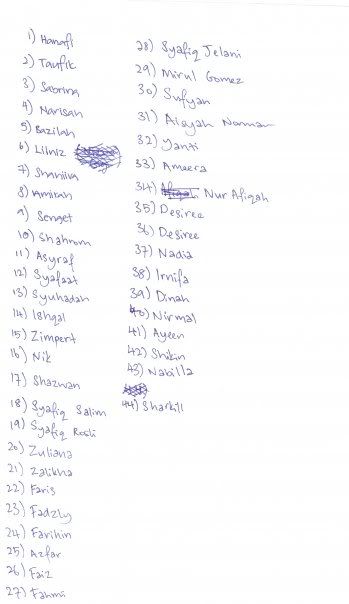 1) Hanafi
2) Taufik
3) Sabrina
4) Narisah
5) Bazilah
6) Lilniz
7) Shamira
8) Amirah
9) Senget
10) Shahrom
11) Asyraf
12) Syafaat
13) Syuhadah
14) Ishqal
15) Zimpert
16) Nik
17) Shazwan
18) Syafiq Salim
19) Syafiq Rosli
20) Zuliana
21) Zalikha
22) Faris
23) Fadzly
24) Farihin
25) Azfar
26) Faiz
27) Fahmi
28) Syafiq Jelani
29) Mirul Gomez
30) Sufyan
31) Aisyah Norman
32) Yanti
33) Ameera
34) Nur Afiqah
35) Desiree
36) Desiree
37) Nadia
38) Irnifa
39) Dinah
40) Nirmal
41) Ayeen
42) Shikin
43) Nabilla
44) Sharkill